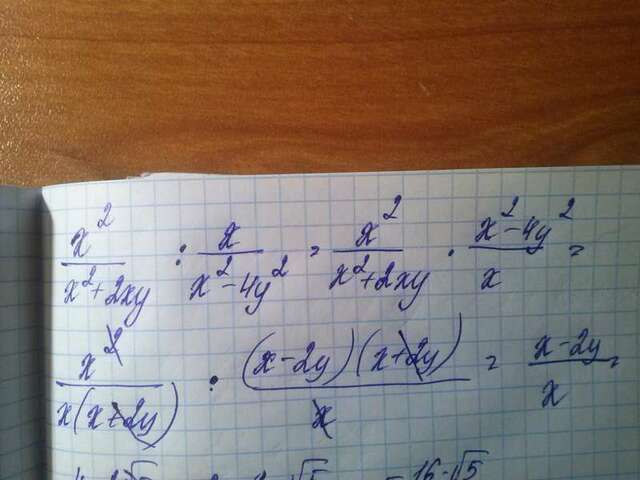 x²/(x²+2xy) : x/(x²-4y²) = x²/(x²+2xy) · (x²-4y²)/x =
x²/(x(x+2y)) · (x-2y)(x+2y)/x = (x-2y)/x =